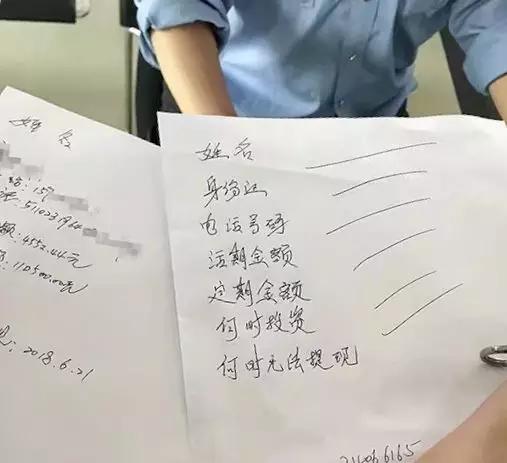 姓名
:159
:51023194
额:4552.44元
:110500.00元
:2018.6.21
姓名
身份证
电话号码
活期金额
定期金额
何时投资
何时无法提现